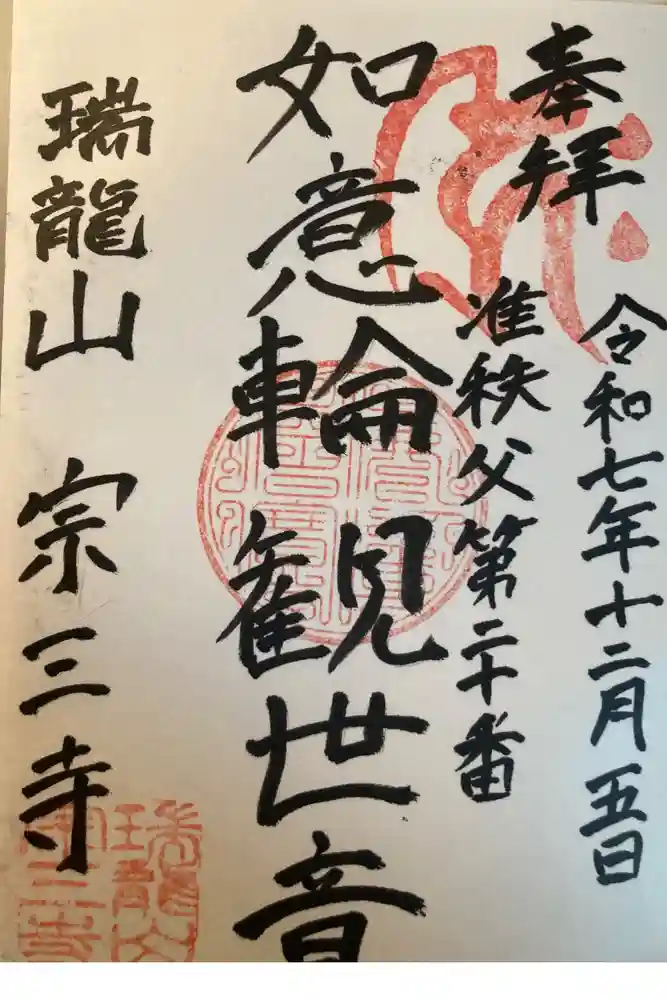 奉拝
令和七年十二月五日
准秩父第二十番
如意輪観世音
瑞龍山 宗三寺